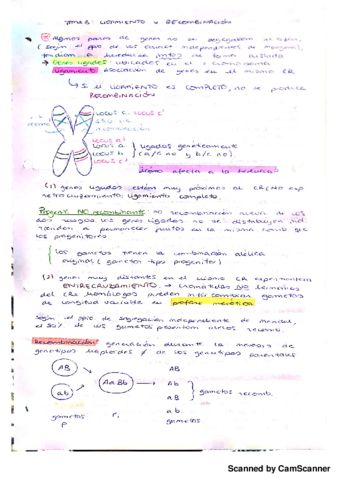 TEMA 3: LIGAMIENTO Y RECOMBINACIÓN
Algunos pares de genes no se segregaban al azar,
(según el ppio de los caract independientes de Mendel),
tendían a heredarse juntos de forma
→ Genes ligados: ubicados en el mismo cromosoma
Ligamiento: asociación de genes en el mismo CR
↳ Si el LIGAMIENTO ES COMPLETO, no se produce
RECOMBINACIÓN
LOCUS c LOCUS c'
LOCUS a'
LOCUS a
LOCUS b
LOCUS c'
ligados genéticamente
(a/c no y b/c no)
¿Cómo afecta a la herencia?
(1) genes ligados están muy próximos al CR (no exp
entrecruzamiento, ligamiento completo.
Progent. NO recombinante: no recombinación nueva de los
dos rasgos. Los genes ligados no se distribuyen ind
tienden a permanecer juntos en la misma comb que
los progenitores
los gametos tienen la combinación alélica
original (gametos tipo progenitor)
(2) genes muy distantes en el mismo CR experimentan
ENTRECRUZAMIENTO → cromátidas NO hermanas
de CRs homólogos pueden intercambiar
de longitud variable. profase I meiótica
Según el ppio de segregación independiente de Mendel,
el 50% de los gametos presentan nuevas recomb.
Recombinación: generación durante la meiosis de
genotipos haploides ≠ de los genotipos parentales
AB
ab
AaBb
AB
Ab
aB
ab
gametos recomb.
gametos
P
F₁
gametos
Scanned by CamScanner